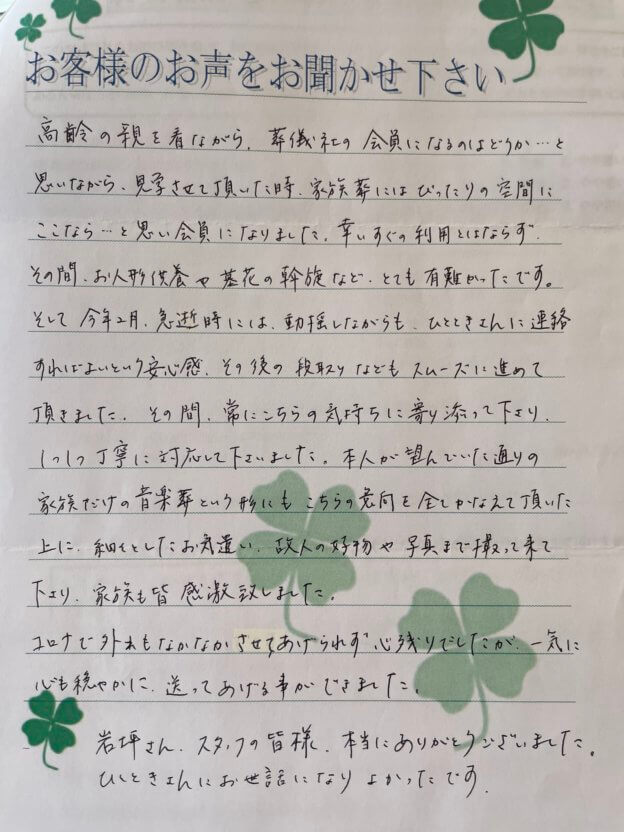 お客様のお声をお聞かせ下さい
高齢の親を看ながら、葬儀社の会員になるのはどうか…と
思いながら、見学させて頂いた時、家族葬にはぴったりの空間に
ここなら…と思い会員になりました。幸いすぐの利用とはならず、
その間、お人形供養や墓花の斡旋など、とても有難かったです。
そして今年2月、急逝時には、動揺しながらも、ひとときさんに連絡
すればよいという安心感、その後の段取りなどもスムーズに進めて
頂きました。その間、常にこちらの気持ちに寄り添って下さり、
1つ1つ丁寧に対応して下さいました。本人が望んでいた通りの
家族だけの音楽葬という形にもこちらの意向を全てかなえて頂いた
上に、細々としたお気遣い、故人の好物や写真まで撮って来て
下さり、家族も皆感激致しました。
コロナで外出もなかなかさせてあげられず心残りでしたが、一気に
心も穏やかに、送ってあげる事ができました。
岩坪さん、スタッフの皆様、本当にありがとうございました。
ひとときさんにお世話になりよかったです。